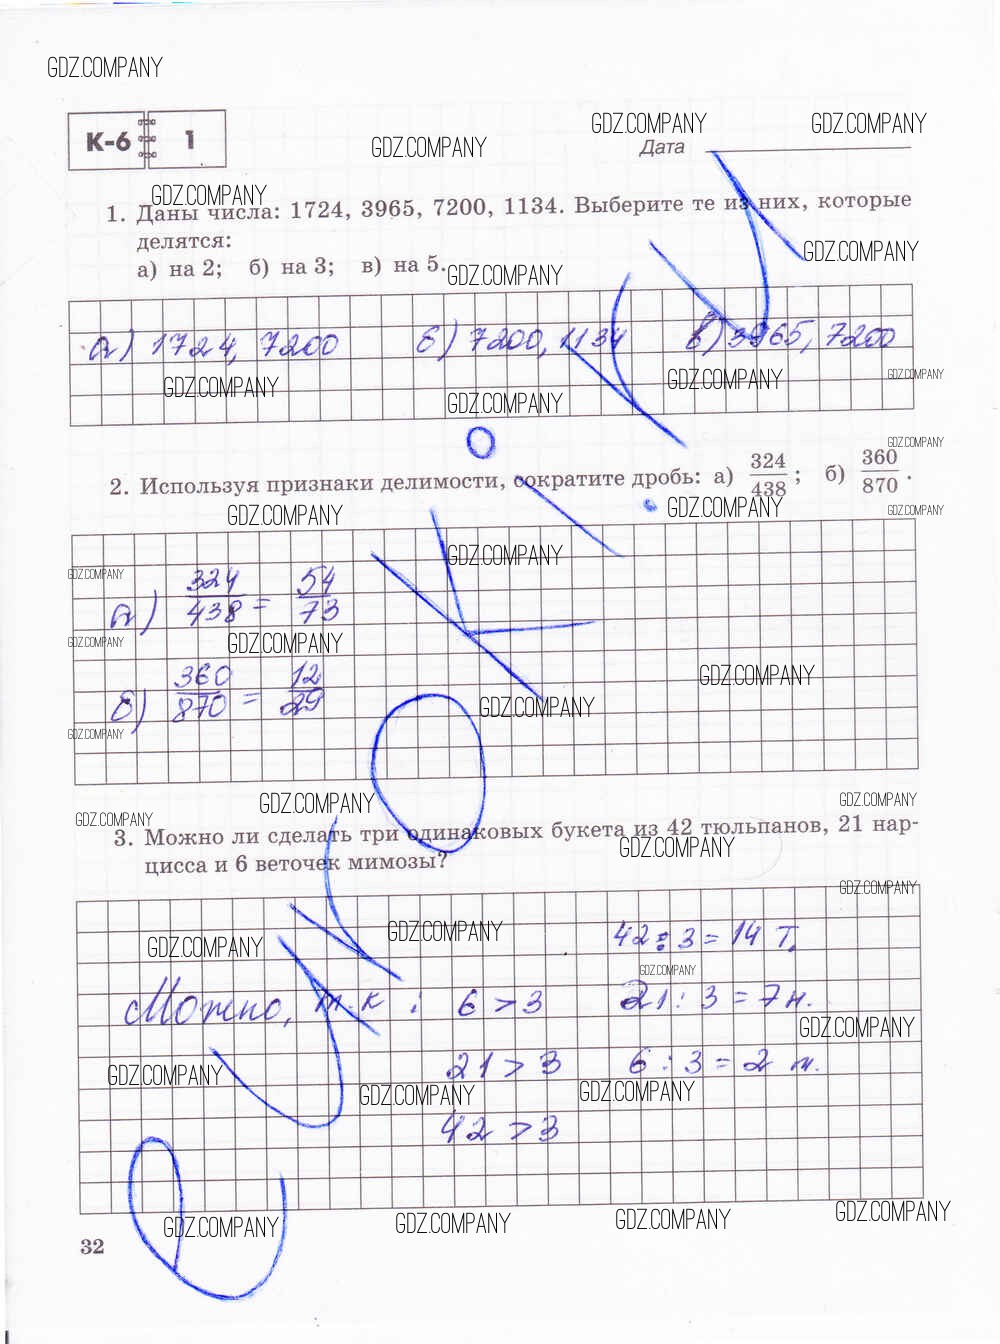 GDZ.COMPANY
К-6 1
GDZ.COMPANY GDZ.COMPANY GDZ.COMPANY
Дата
GDZ.COMPANY
1. Даны числа: 1724, 3965, 7200, 1134. Выберите те из них, которые
делятся:
GDZ.COMPANY
а) на 2; б) на 3; в) на 5.
GDZ.COMPANY
а) 1724, 7200 б) 7200, 1134 в) 3965, 7200
GDZ.COMPANY GDZ.COMPANY GDZ.COMPANY GDZ.COMPANY
GDZ.COMPANY
2. Используя признаки делимости, сократите дробь: а) 324/438; б) 360/870.
GDZ.COMPANY GDZ.COMPANY GDZ.COMPANY
GDZ.COMPANY
GDZ.COMPANY
а) 324/438 = 54/73
GDZ.COMPANY GDZ.COMPANY
GDZ.COMPANY
б) 360/870 = 12/29
GDZ.COMPANY
GDZ.COMPANY
GDZ.COMPANY GDZ.COMPANY GDZ.COMPANY
3. Можно ли сделать три одинаковых букета из 42 тюльпанов, 21 нар-
GDZ.COMPANY
цисса и 6 веточек мимозы?
GDZ.COMPANY
42 : 3 = 14 т.
GDZ.COMPANY GDZ.COMPANY
GDZ.COMPANY
Можно, т.к : 6 > 3 21 : 3 = 7 н.
GDZ.COMPANY
21 > 3 6 : 3 = 2 м.
GDZ.COMPANY GDZ.COMPANY GDZ.COMPANY
42 > 3
GDZ.COMPANY GDZ.COMPANY GDZ.COMPANY GDZ.COMPANY
32